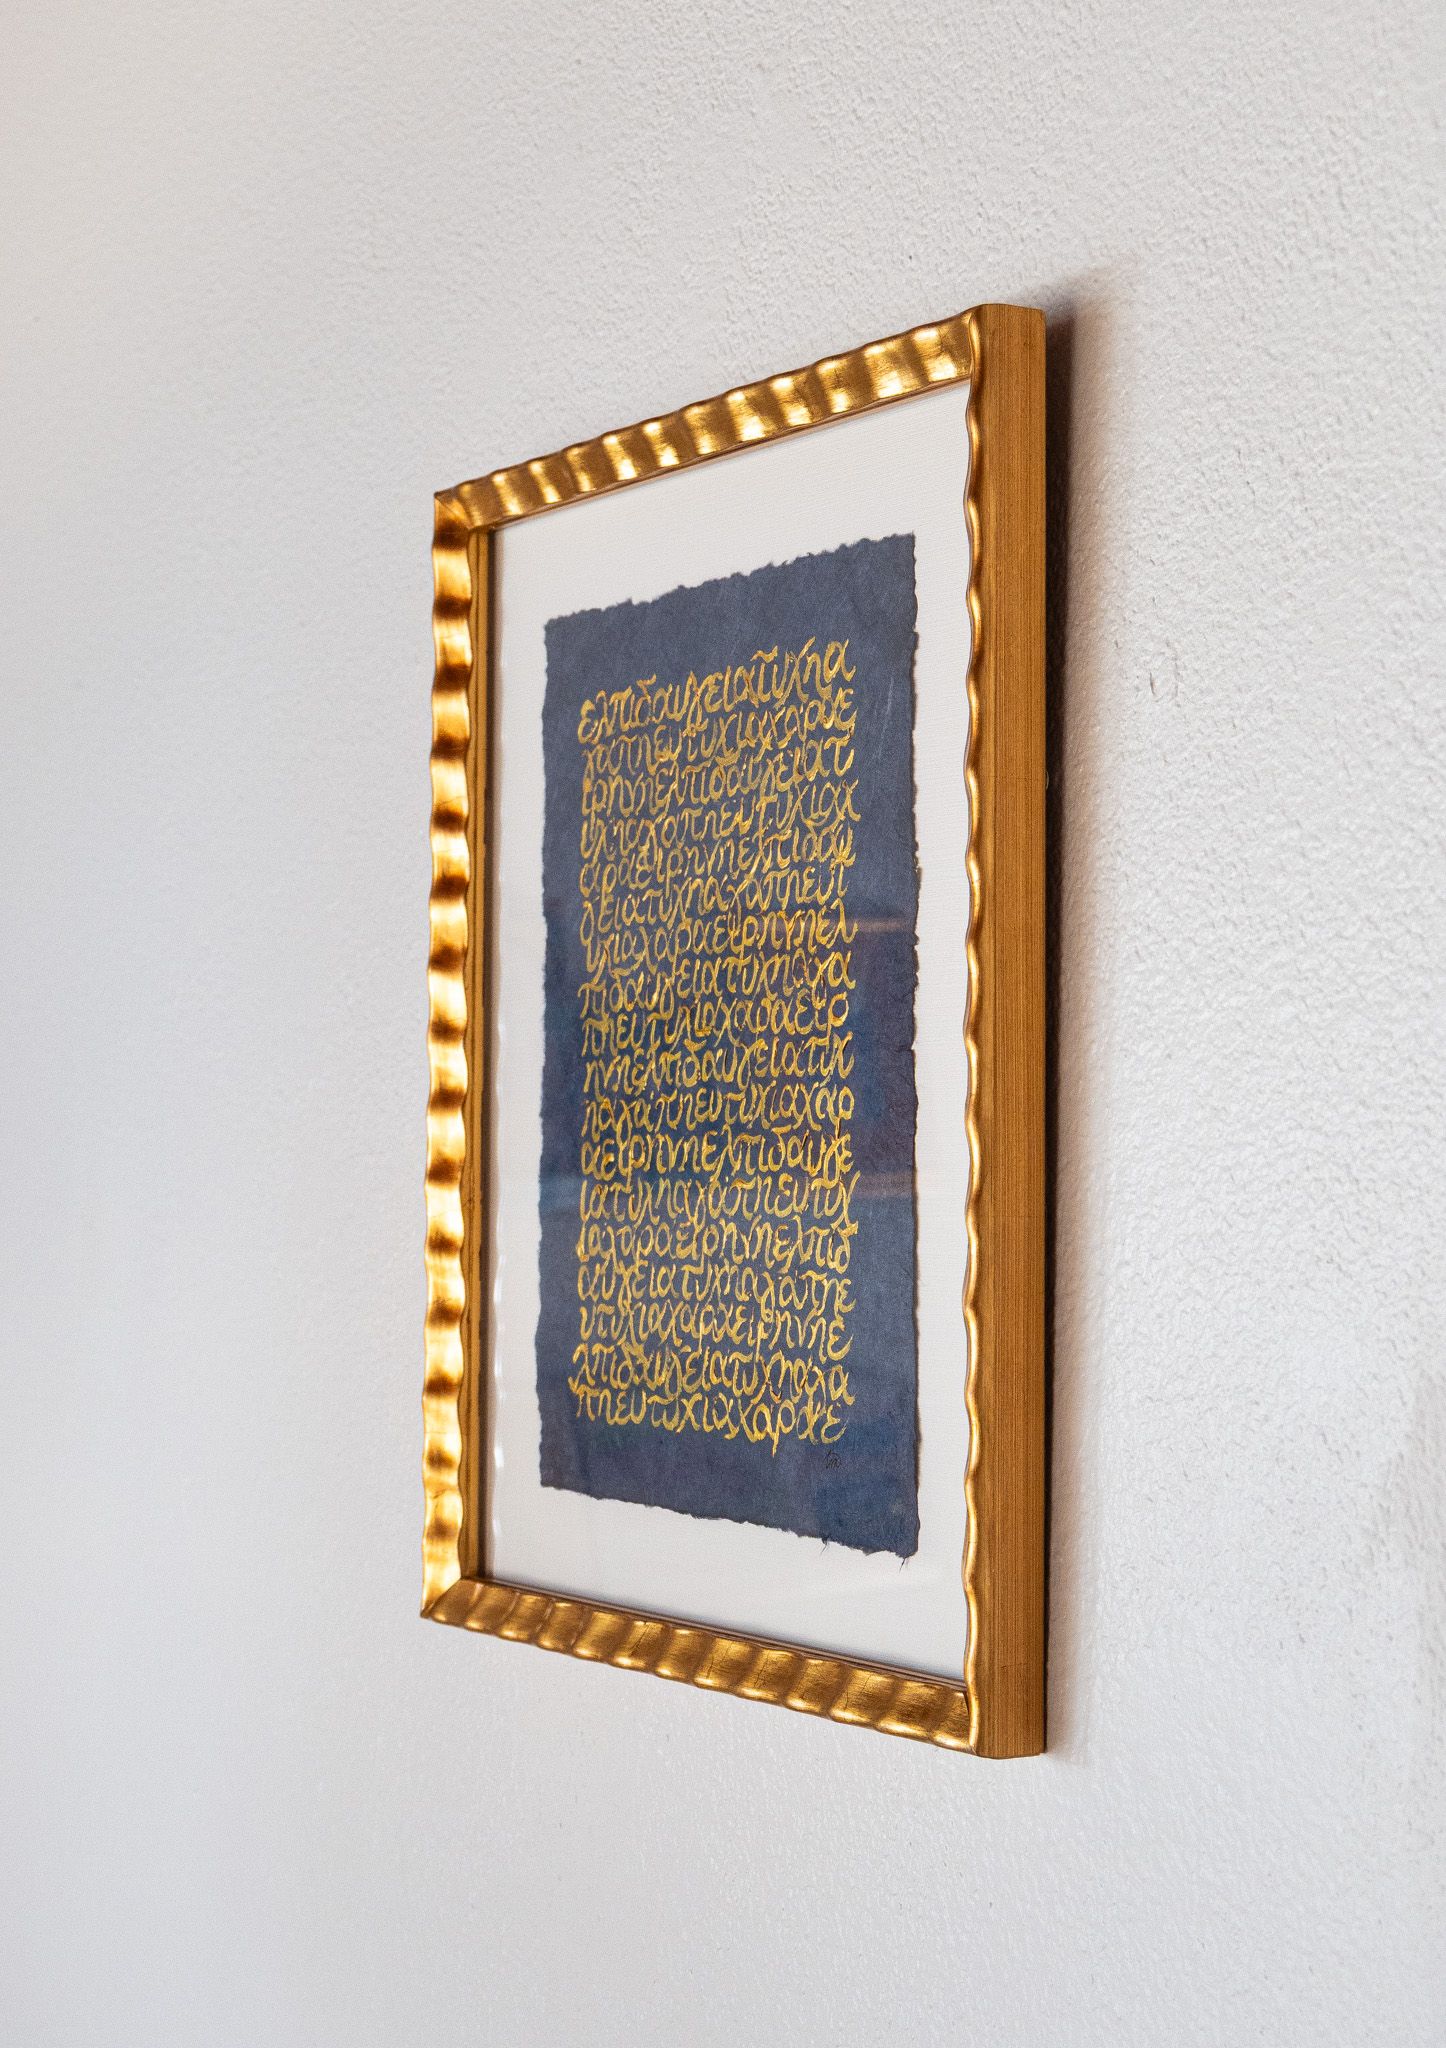 ελπιδαυγειατυχηα
γαπηευτυχιαχαραε
ιρηνηελπιδαυγειατ
υχηαγαπηευτυχιαχ
αραειρηνηελπιδαυ
γειατυχηαγαπηευτ
υχιαχαραειρηνηελ
πιδαυγειατυχηαγα
πηευτυχιαχαραειρ
ηνηελπιδαυγειατυχ
ηαγαπηευτυχιαχαρ
αειρηνηελπιδαυγε
ιατυχηαγαπηευτυχ
ιαχαραειρηνηελπιδ
αυγειατυχηαγαπηε
υτυχιαχαραειρηνηε
λπιδαυγειατυχηαγα
πηευτυχιαχαραε